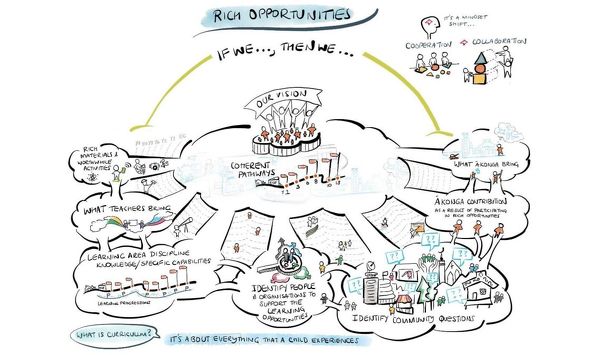 RICH OPPORTUNITIES
IF WE..., THEN WE...
IT'S A MINDSET
SHIFT...
COOPERATION → COLLABORATION
OUR VISION
COHERENT
PATHWAYS
RICH
MATERIALS &
WORTHWHILE
ACTIVITIES
WHAT TEACHERS BRING
LEARNING AREA DISCIPLINE
KNOWLEDGE/SPECIFIC CAPABILITIES
LEARNING PROGRESSIONS
WHAT ĀKONGA BRING
ĀKONGA CONTRIBUTION
AS A RESULT OF PARTICIPATING
IN RICH OPPORTUNITIES
IDENTIFY PEOPLE
& ORGANISATIONS TO
SUPPORT THE
LEARNING
OPPORTUNITIES
IDENTIFY COMMUNITY QUESTIONS
WHAT IS CURRICULUM?
IT'S ABOUT EVERYTHING THAT A CHILD EXPERIENCES